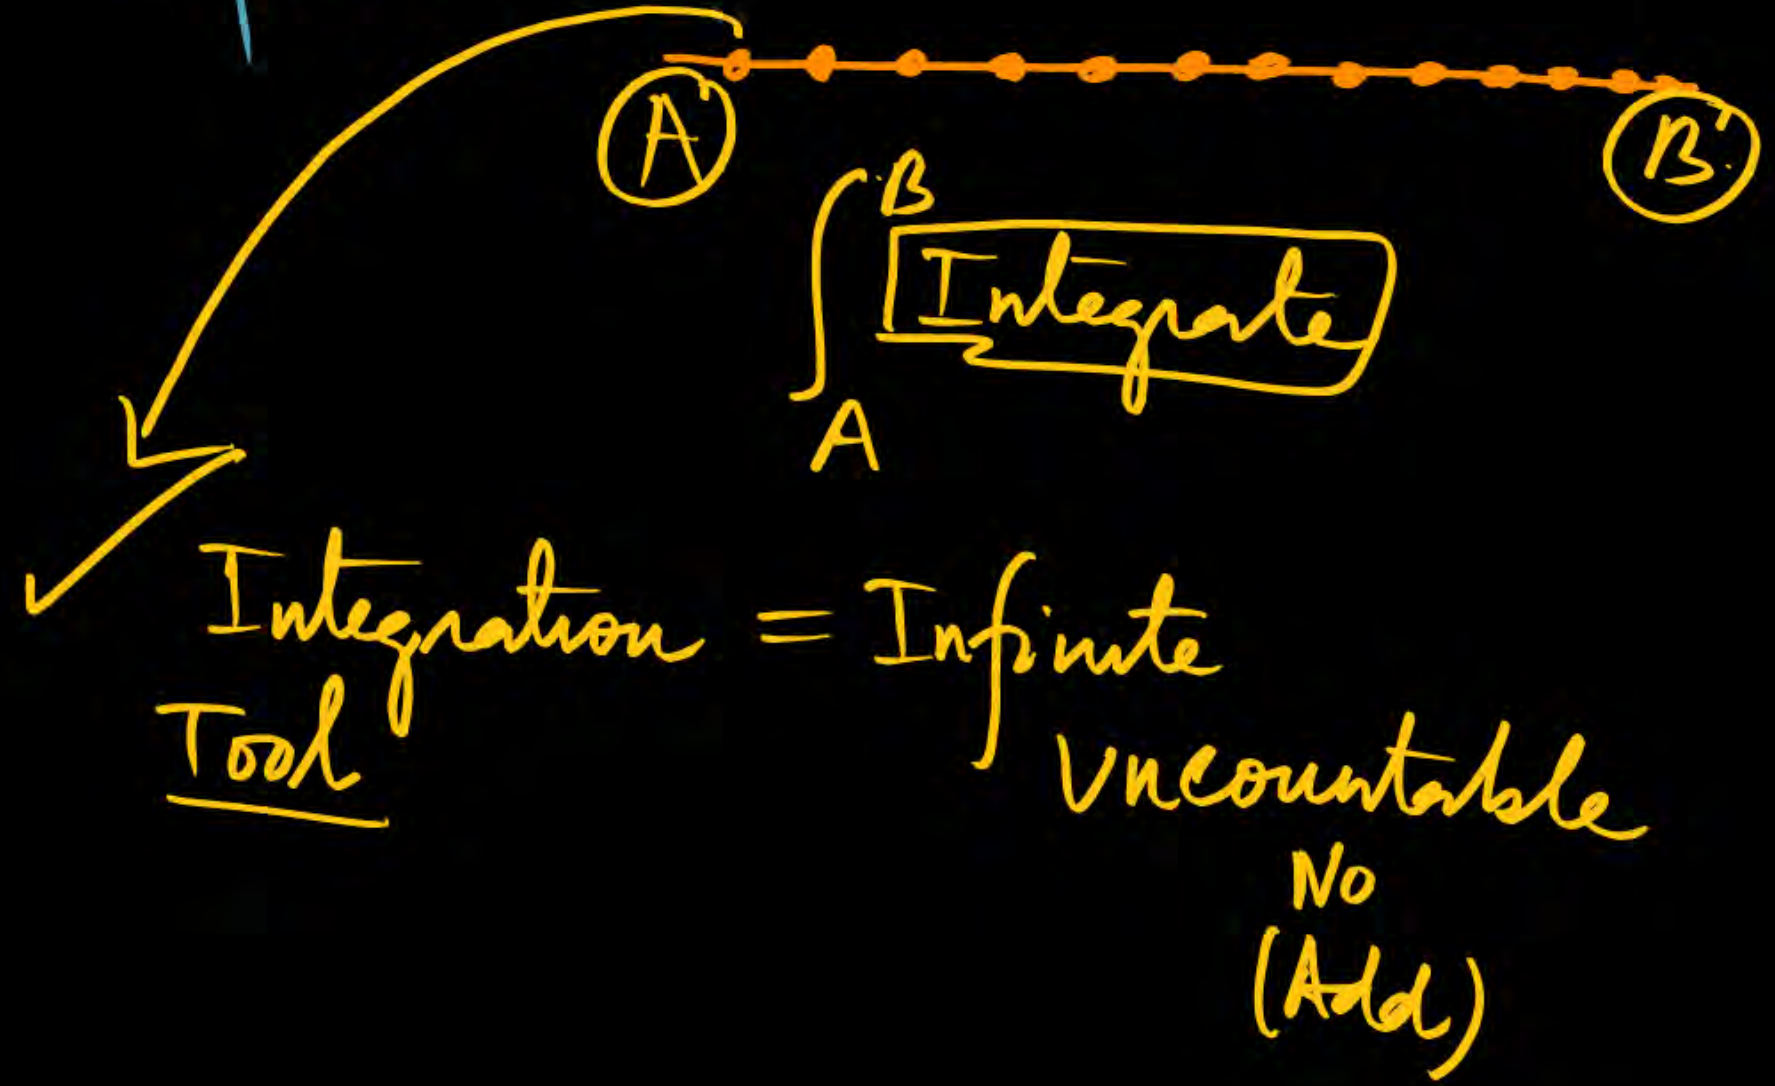 A B
∫ B
Integrate
A
Integration = Infinite
Tool
Uncountable
No
(Add)